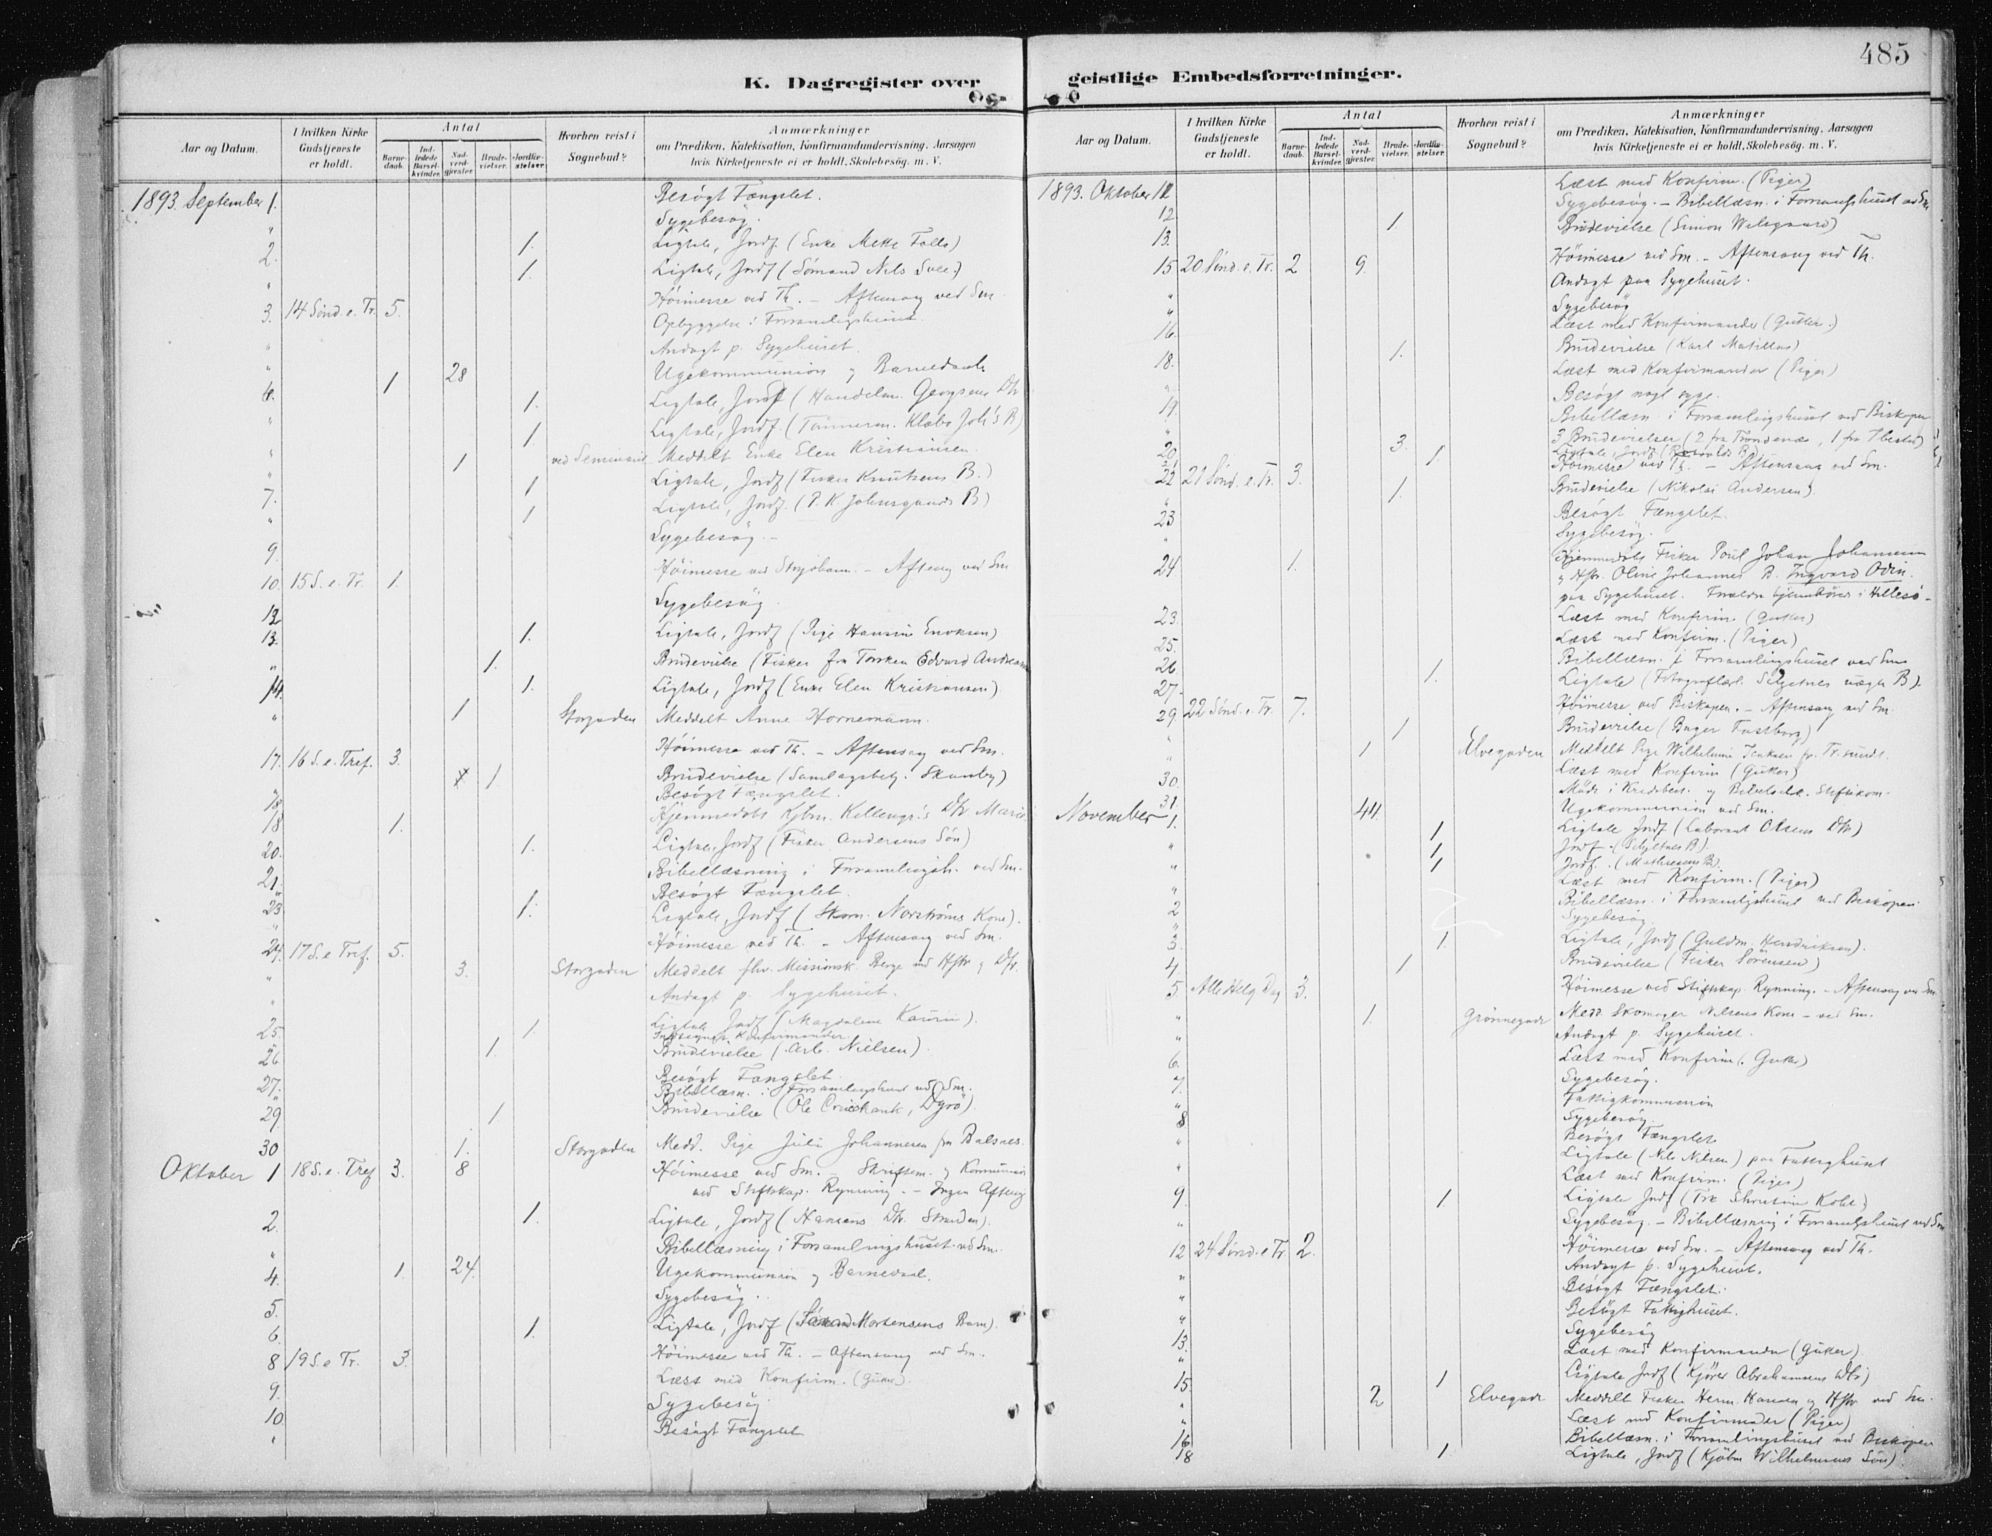 485
K. Dagregister over
Aar og Datum.
I hvilken Kirke Gudstjeneste er holdt.
Antal
Barnedaab.
Indledede Barselkvinder.
Nadverdgjester.
Brudevielser.
Jordfæstelser.
Hvorhen reist i Sognebud?
Anmærkninger
om Prædiken, Katekisation, Konfirmandundervisning, Aarsagen
hvis Kirketjeneste ei er holdt, Skolebesøg, m. V.
1893. September 1. Besøgt Fængslet.
" Sygebesøg.
2. 1. Ligtale, Jordf. (Enke
" 1. Ligtale, Jordf (Sømand Nils
3. 14 Sønd. e. Tr. 5. Höimesse ved Th. - Aftensang ved Sm.
Opbyggelse i Forsamlingshuset.
" Andagt p. Sygehuset.
6. 1 28 Ugekommunion og Barnedaab
" 1. Ligtale, Jordf (Handelsm. Georgsens Dtr
" 1 Ligtale, Jordf. (
" 1 ved Seminariet Meddelt Enke Elen Kristiansen.
7. 1 Ligtale, Jordf (Fisker Knutsens B.)
" 1 Ligtale, Jordf. (P. K. B)
9. Sygebesøg. -
10. 15 S. e. Tr. 1. Höimesse ved - Aftensg ved Sm
12. Sygebesøg.
13. 1. Ligtale, Jordf (Pige Hansine Enoksen)
" 1. Brudevielse (Fisker fra Torsken Edvard
14. 1. Ligtale, Jordf (Enke Elen Kristiansen)
" 1 Storgaden Meddelt Anne Hornemann.
17. 16 S. e. Tref. 3. Höimesse ved Th. - Aftensag ved Sm.
1 Brudevielse (Samlagsbets.
18 Besøgt Fængslet.
18 1. Hjemmedøbt Kjbm. Killengr.'s Dtr Marie
20. 1. Ligtale, Jordf (Fisker Andersens Søn)
21. Bibellæsning i Forsamlingsh. ved Sm.
" Besøgt Fængslet.
23 1. Ligtale, Jordf (Skom. Norströms Kone).
24. 17 S. e. Tref. 5. Höimesse ved Th. - Aftensag ved Sm.
" 3. Storgaden Meddelt fhv. Missionsk. Berge med Hstr og Dtr.
" Andagt p. Sygehuset.
25. 1. Ligtale Jordf (Magdalene Kaurin).
Konfirmander
26 1. Brudevielse (Arb. Nielsen).
27. Besøgt Fængslet.
" Bibellæsn. i Forsamlingshuset ved Sm.
29. 1 Brudevielse (Ole Dyrö).
30 1. Storgaden Medd. Pige Juli Johannesen fra Balsnes.
Oktober 1 18 S. e. Tref 3. 8 Höimesse ved Sm. - Skriftem. og Kommunion
ved Stiftskap. Rynning. - Ingen Aftensg
2. 1. Ligtale, Jordf (Hansens Dtr. Stranden).
" Bibellæsning i Forsamlingshuset ved Sm.
4. 1. 24. Ugekommunion og Barnedaab.
5. Sygebesøg.
6. 1. Ligtale, Jordf (Sömand Mortensens Barn).
8 19 S. e Tr. 3. Höimesse ved Th. - Aftensang ved Sm.
9. Læst med Konfirm. (Gutter).
10. Sygebesøg
" Besøgt Fængslet
geistlige Embedsforretninger.
Aar og Datum.
I hvilken Kirke Gudstjeneste er holdt.
Antal
Barnedaab.
Indledede Barselkvinder.
Nadverdgjester.
Brudevielser.
Jordfæstelser.
Hvorhen reist i Sognebud?
Anmærkninger
om Prædiken, Katekisation, Konfirmandundervisning, Aarsagen
hvis Kirketjeneste ei er holdt, Skolebesøg, m. V.
1893. Oktober 11. Læst med Konfirm. (Piger)
12 Sygebesøg. - Bibellæsn. i Forsamlshuset ved Sm
13. 1. Brudevielse (Simon
15. 20 Sønd. e. Tr. 2 9. Höimesse ved Sm. - Aftensang ved Th.
" Andagt paa Sygehuset.
" Sygebesøg
16. Læst med Konfirmander (Gutter.)
18. 1. Brudevielse (Karl
" Læst med Konfirmander (Piger)
19. Besøgt nogt syge.
" Bibellæsn. i Forsamlingshuset ved Biskopen
20. 3. 3 Brudevielser (2 fra Trondenæs, 1 fra Ibestad)
21 1. Ligtale, Jordf
22 21 Sønd. e. Tr. 3. Höimesse ved Th. - Aftensang ved Sm.
" 1. Brudevielse (Nikolai Andersen).
23 Besøgt Fængslet.
" Sygebesøg.
24. 1. Hjemmedøbt Fisker Poul Johan Johannesen
og Hstr. Oline Johannes B. Ingvard Odin.
paa Sygehuset. hjemhörer i Hillesö -
23. Læst med Konfirm. (Gutter)
25. Læst med Konfirm. (Piger)
26. Bibellæsn. i Forsamlingshuset ved Sm
27. 1. Ligtale (Fotograflærl. B).
29 22 Sønd. e. Tr. 7. Höimesse ved Biskopen. - Aftensang ved Sm.
" 1 Brudevielse (Bager
" 1 Elvegaden Meddelt Pige Wilhelmine
30. Læst med Konfirm (Gutter)
31. Möde i
November 1. 44. Ugekommunion ved Sm.
" 1 Ligtale Jordf (Laborant Olsens Dtr)
" 1 Jordf.
" 1 Jordf. (Mathiesens B).
" Læst med Konfirm. (Piger)
2 Bibellæsn. i Forsamlighuset ved Biskopen.
" Sygebesøg.
3. 1. Ligtale, Jordf (Guldm. Hendriksen).
4. 1 Brudevielse (Fisker Sörensen)
5 Alle Helg Dag 3. Höimesse ved Stiftskap. Rynning. - Aftensag ved Sm.
" 1. Grönnegade Medd. Skomager Nilsens Kone - ved Sm.
" Andagt p. Sygehuset.
6. Læst med Konfirm (. Gutter)
7. Sygebesøg.
" Fattigkommission
8 Sygebesøg.
" Besøgt Fængslet
" Ligtale (Nils Nilsen) paa Fattighuset
Læst med Konfirm. (Piger)
9. 1 Ligtale Jordf
" Sygebesøg. - Bibellæsning i Forsamlghuset ved Sm
12 24 Sønd. e Tr. 2. Höimesse ved Sm. - Aftensang ved Th.
" Andagt p. Sygehuset.
" Besøgt Fængslet.
" Besøgt Fattighuset.
13. Sygebesøg
" Læst med Konfirmander (Gutter).
15. 1 Ligtale Jordf (Abrahamsens Dtr)
" 2 Elvegade Meddelt Fisker Herm. Hansen og Hstr ved Sm.
" Læst med Konfirmander (Piger)
16. Bibellæsn. i Forsamlingshuset ved Biskopen
18 1 Ligtale, Jordf (Kjöbm Wilhelmsens Søn).